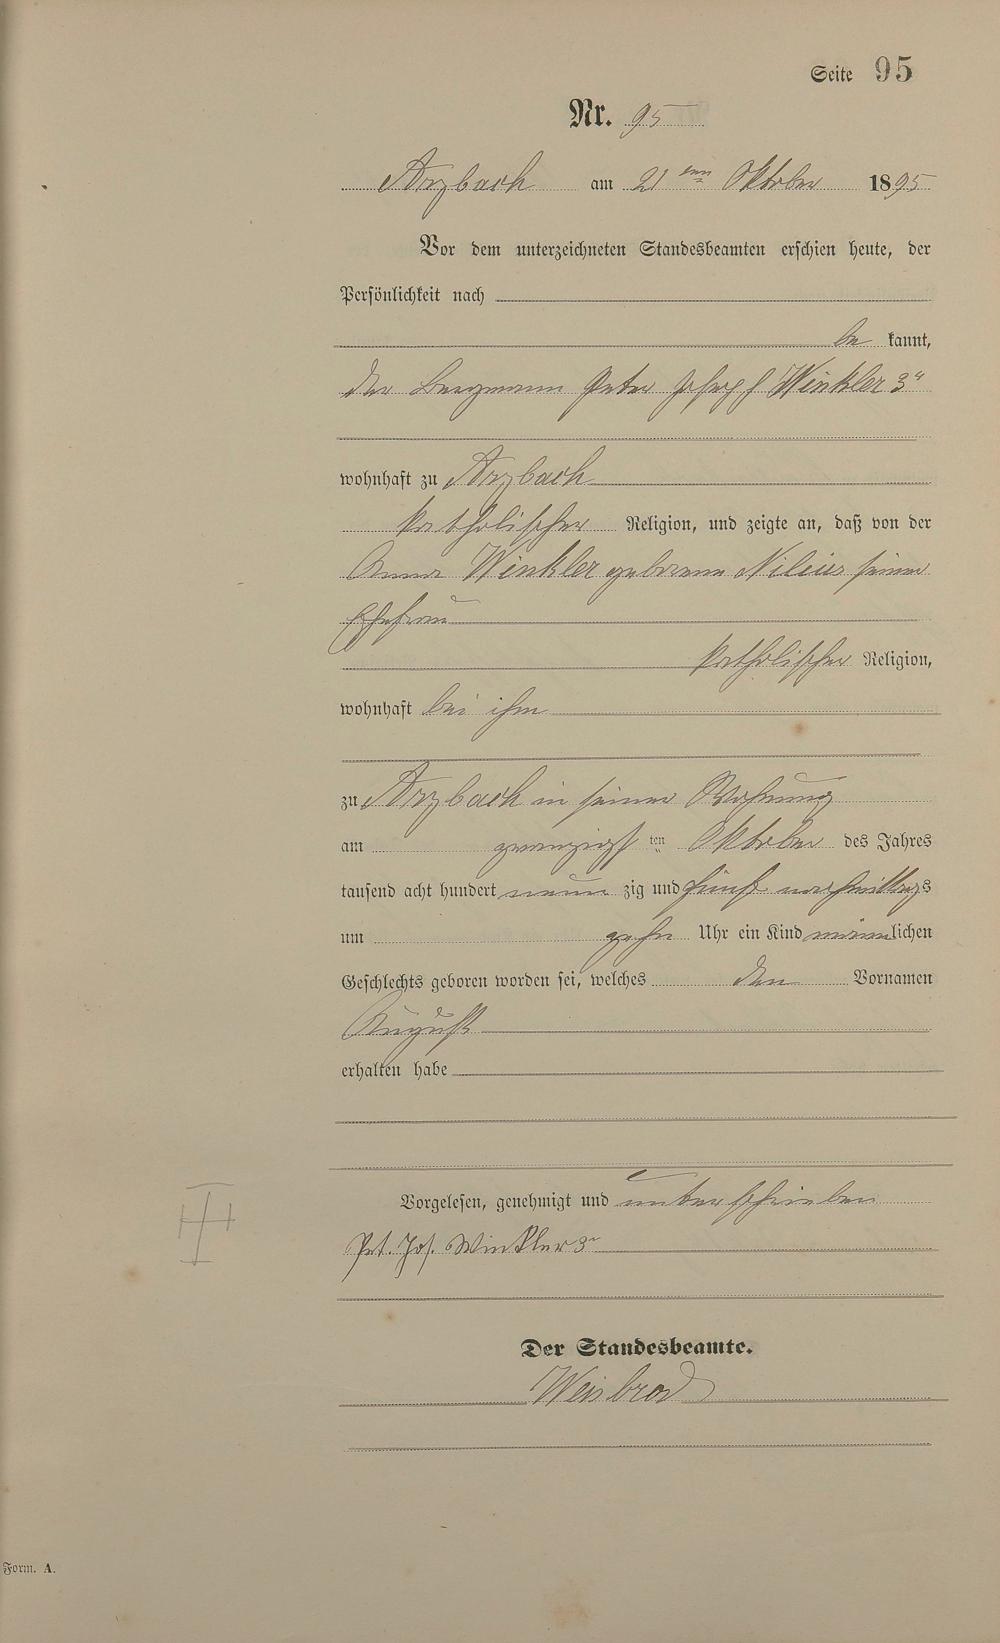 Seite 95
Nr. 95
Arzbach am 21ten Oktober 1895
Vor dem unterzeichneten Standesbeamten erschien heute, der
Persönlichkeit nach
be kannt,
der Bergmann Peter Joseph Winkler 3r
wohnhaft zu Arzbach
katholischer Religion, und zeigte an, daß von der
Anna Winkler geborenen Nilius seiner
Ehefrau
katholischer Religion,
wohnhaft bei ihm
zu Arzbach in seiner Wohnung
am zwanzigsten Oktober des Jahres
tausend acht hundert neun zig und fünf nachmittags
um zehn Uhr ein Kind männlichen
Geschlechts geboren worden sei, welches den Vornamen
August
erhalten habe
Vorgelesen, genehmigt und unterschrieben
Pet. Jos. Winkler 3r
Der Standesbeamte.
Weisbrod
Form. A.